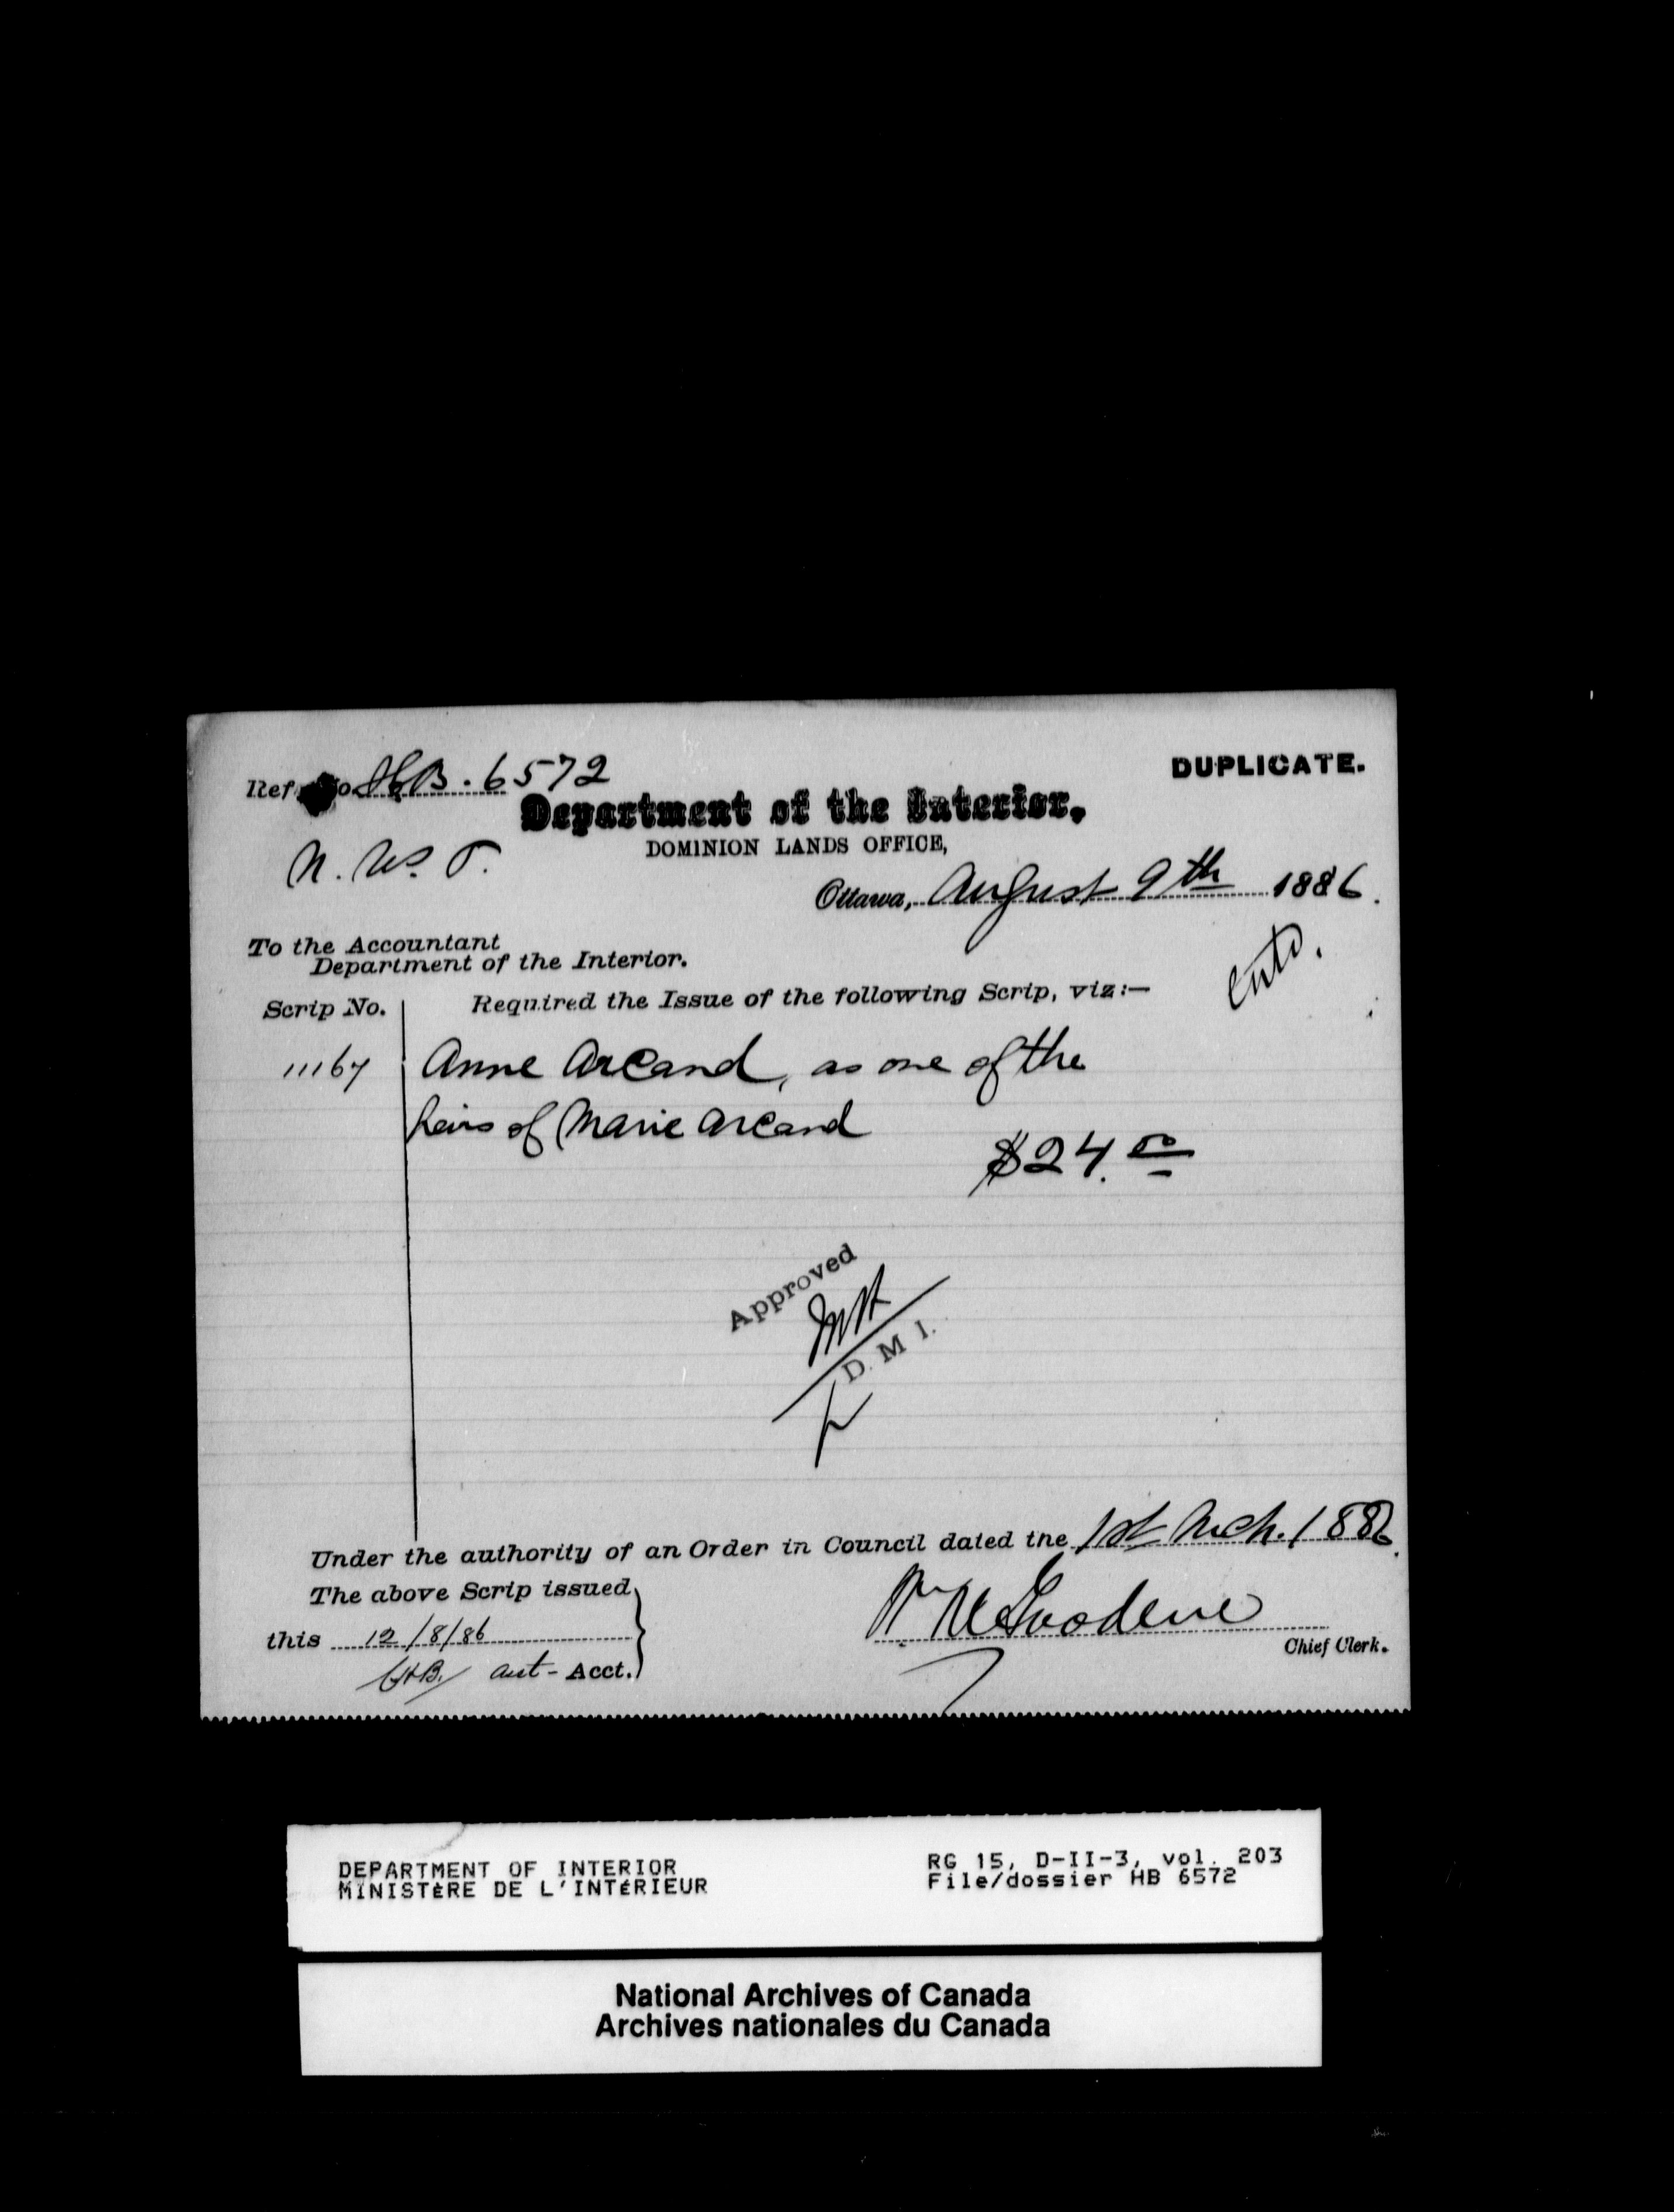 DUPLICATE.
Ref. No. HB. 6572
Department of the Interior,
DOMINION LANDS OFFICE,
N. W. T.
Ottawa, August 9th 1886.
To the Accountant
Department of the Interior.
Scrip No. Required the Issue of the following Scrip, viz:—
11167 Anne Arcand, as one of the
heirs of Marie Arcand
$24.00
Approved
D. M. I.
Under the authority of an Order in Council dated the 1st Mch. 1886.
The above Scrip issued
this 12/8/86
Acct.
Chief Clerk.
DEPARTMENT OF INTERIOR
MINISTÈRE DE L'INTÉRIEUR
RG 15, D-II-3, vol. 203
File/dossier HB 6572
National Archives of Canada
Archives nationales du Canada